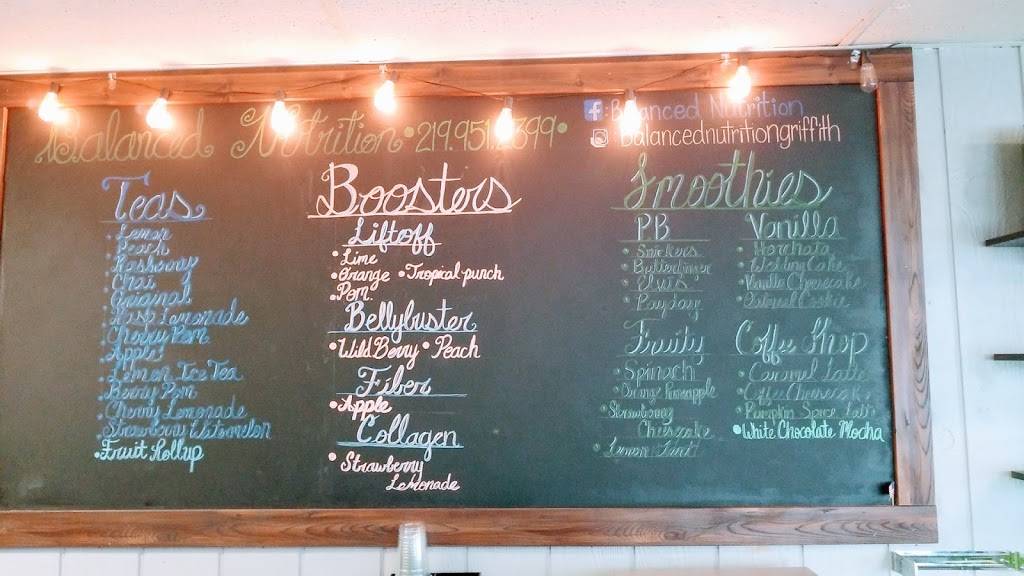 Balanced Nutrition • 219.951.2399 •
Balanced Nutrition
balancednutritiongriffith
Teas
• Lemon
• Peach
• Raspberry
• Chai
• Original
• Rasp Lemonade
• Cherry Pom
• Apple
• Lemon Ice Tea
• Berry Pom
• Cherry Lemonade
• Strawberry Watermelon
• Fruit Rollup
Boosters
Liftoff
• Lime
• Orange • Tropical punch
• Pom
Bellybuster
• Wild Berry • Peach
Fiber
• Apple
Collagen
• Strawberry
Lemonade
Smoothies
PB
• Snickers
• Butterfinger
• Elvis
• Payday
Vanilla
• Horchata
• Wedding Cake
• Vanilla Cheesecake
• Oatmeal Cookie
Fruity
• Spinach
• Orange Pineapple
• Strawberry
Cheesecake
• Lemon
Coffee Shop
• Caramel Latte
• Coffee Cheesecake
• Pumpkin Spice Latte
• White Chocolate Mocha